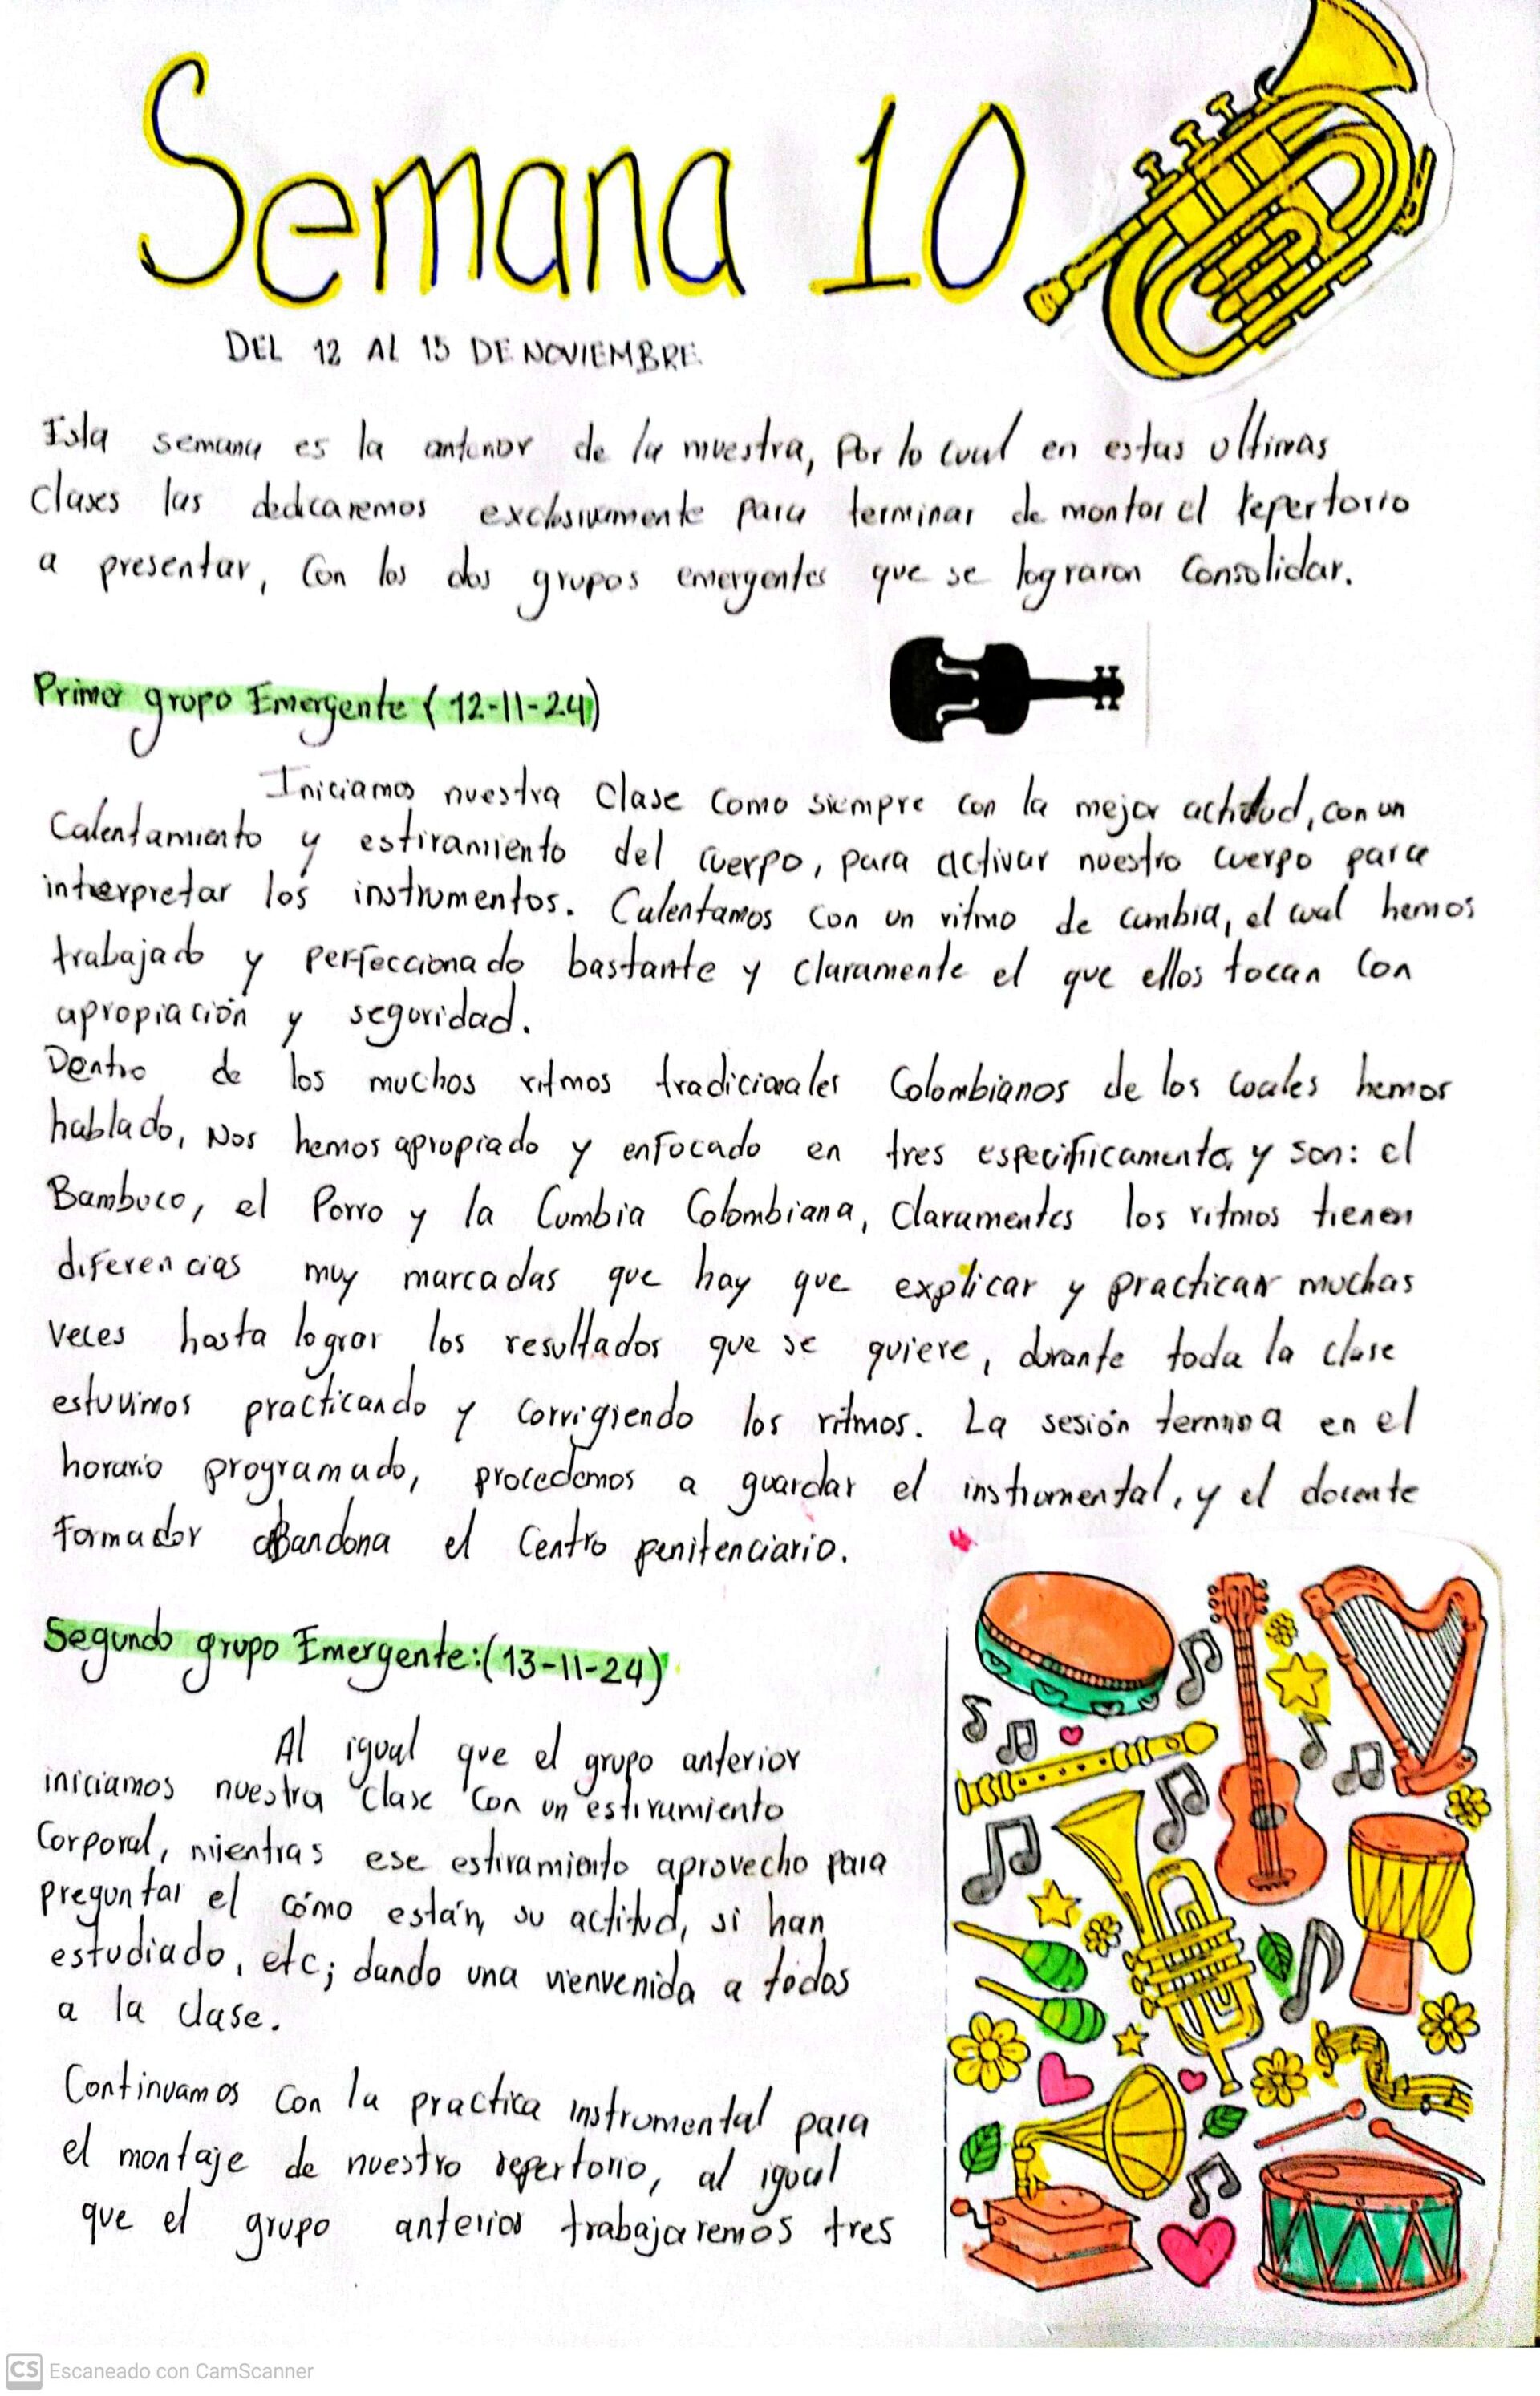 Semana 10
DEL 12 AL 15 DE NOVIEMBRE
Esta semana es la anterior de la muestra, Por lo cual en estas ultimas
clases las dedicaremos exclusivamente para terminar de montar el repertorio
a presentar, Con los dos grupos emergentes que se lograron Consolidar.
Primer grupo Emergente (12-11-24)
Iniciamos nuestra Clase Como siempre con la mejor actitud, con un
Calentamiento y estiramiento del cuerpo, para activar nuestro cuerpo para
interpretar los instrumentos. Calentamos con un ritmo de cumbia, el cual hemos
trabajado y perfeccionado bastante y claramente el que ellos tocan con
apropiación y seguridad.
Dentro de los muchos ritmos tradicionales Colombianos de los cuales hemos
hablado, Nos hemos apropiado y enfocado en tres especificamente, y son: el
Bambuco, el Porro y la Cumbia Colombiana, Claramentes los ritmos tienen
diferencias muy marcadas que hay que explicar y practicar muchas
veces hasta lograr los resultados que se quiere, durante toda la clase
estuvimos practicando y corrigiendo los ritmos. La sesión termina en el
horario programado, procedemos a guardar el instrumental, y el docente
Formador aBandona el Centro penitenciario.
Segundo grupo Emergente: (13-11-24)
Al igual que el grupo anterior
iniciamos nuestra Clase Con un estiramiento
Corporal, mientras ese estiramiento aprovecho para
preguntar el cómo están, su actitud, si han
estudiado, etc; dando una vienvenida a todos
a la clase.
Continuamos Con la practica instrumental para
el montaje de nuestro repertorio, al igual
que el grupo anterior trabajaremos tres
CS Escaneado con CamScanner